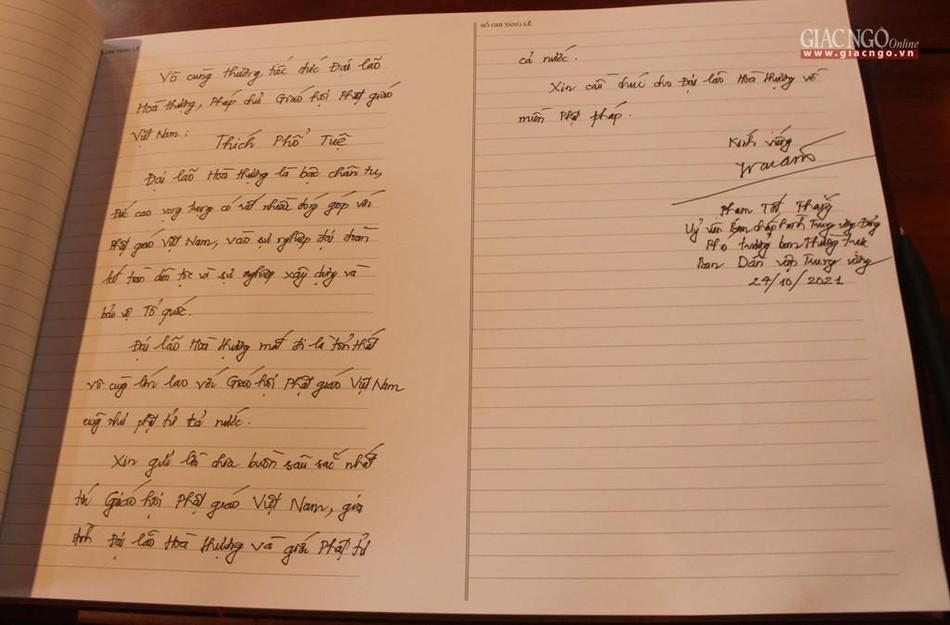 GHI TANG LỄ
Vô cùng thương tiếc đức Đại lão
Hoà thượng, Pháp chủ Giáo hội Phật giáo
Việt Nam:
Thích Phổ Tuệ
Đại lão Hoà thượng là bậc chân tu,
Đức cao vọng trọng có rất nhiều đóng góp với
Phật giáo Việt Nam, vào sự nghiệp đại đoàn
kết toàn dân tộc và sự nghiệp xây dựng và
bảo vệ Tổ quốc.
Đại lão Hoà thượng mất đi là tổn thất
vô cùng lớn lao với Giáo hội Phật giáo Việt Nam
cũng như phật tử cả nước.
Xin gửi lời chia buồn sâu sắc nhất
tới Giáo hội Phật giáo Việt Nam, gia
đình Đại lão Hoà thượng và giới Phật tử
SỔ GHI TANG LỄ
cả nước.
Xin cầu chúc cho Đại lão Hoà thượng về
miền Phật pháp.
Kính viếng
Phạm Tất Thắng
Uỷ viên Ban chấp hành Trung ương Đảng
Phó trưởng ban Thường trực
Ban Dân vận Trung ương
24/10/2021
GIÁC NGỘ Online
www.giacngo.vn